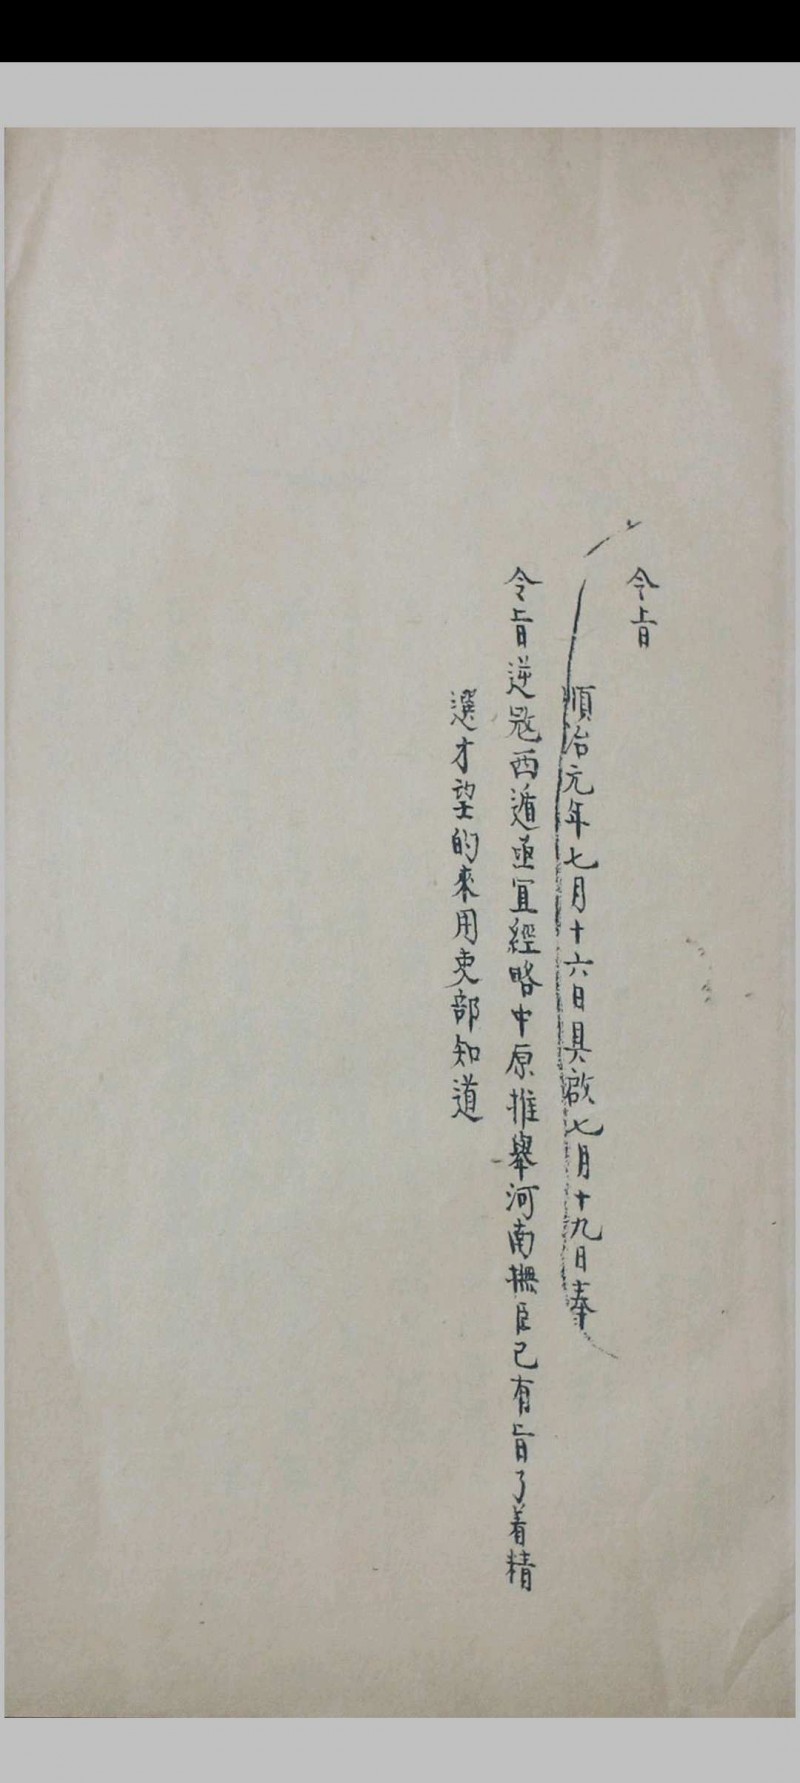 令旨
順治元年七月十六日具啟七月十九日奉
令旨逆寇西遁亟宜經略中原推舉河南撫臣已有旨了着精
選才望的來用吏部知道